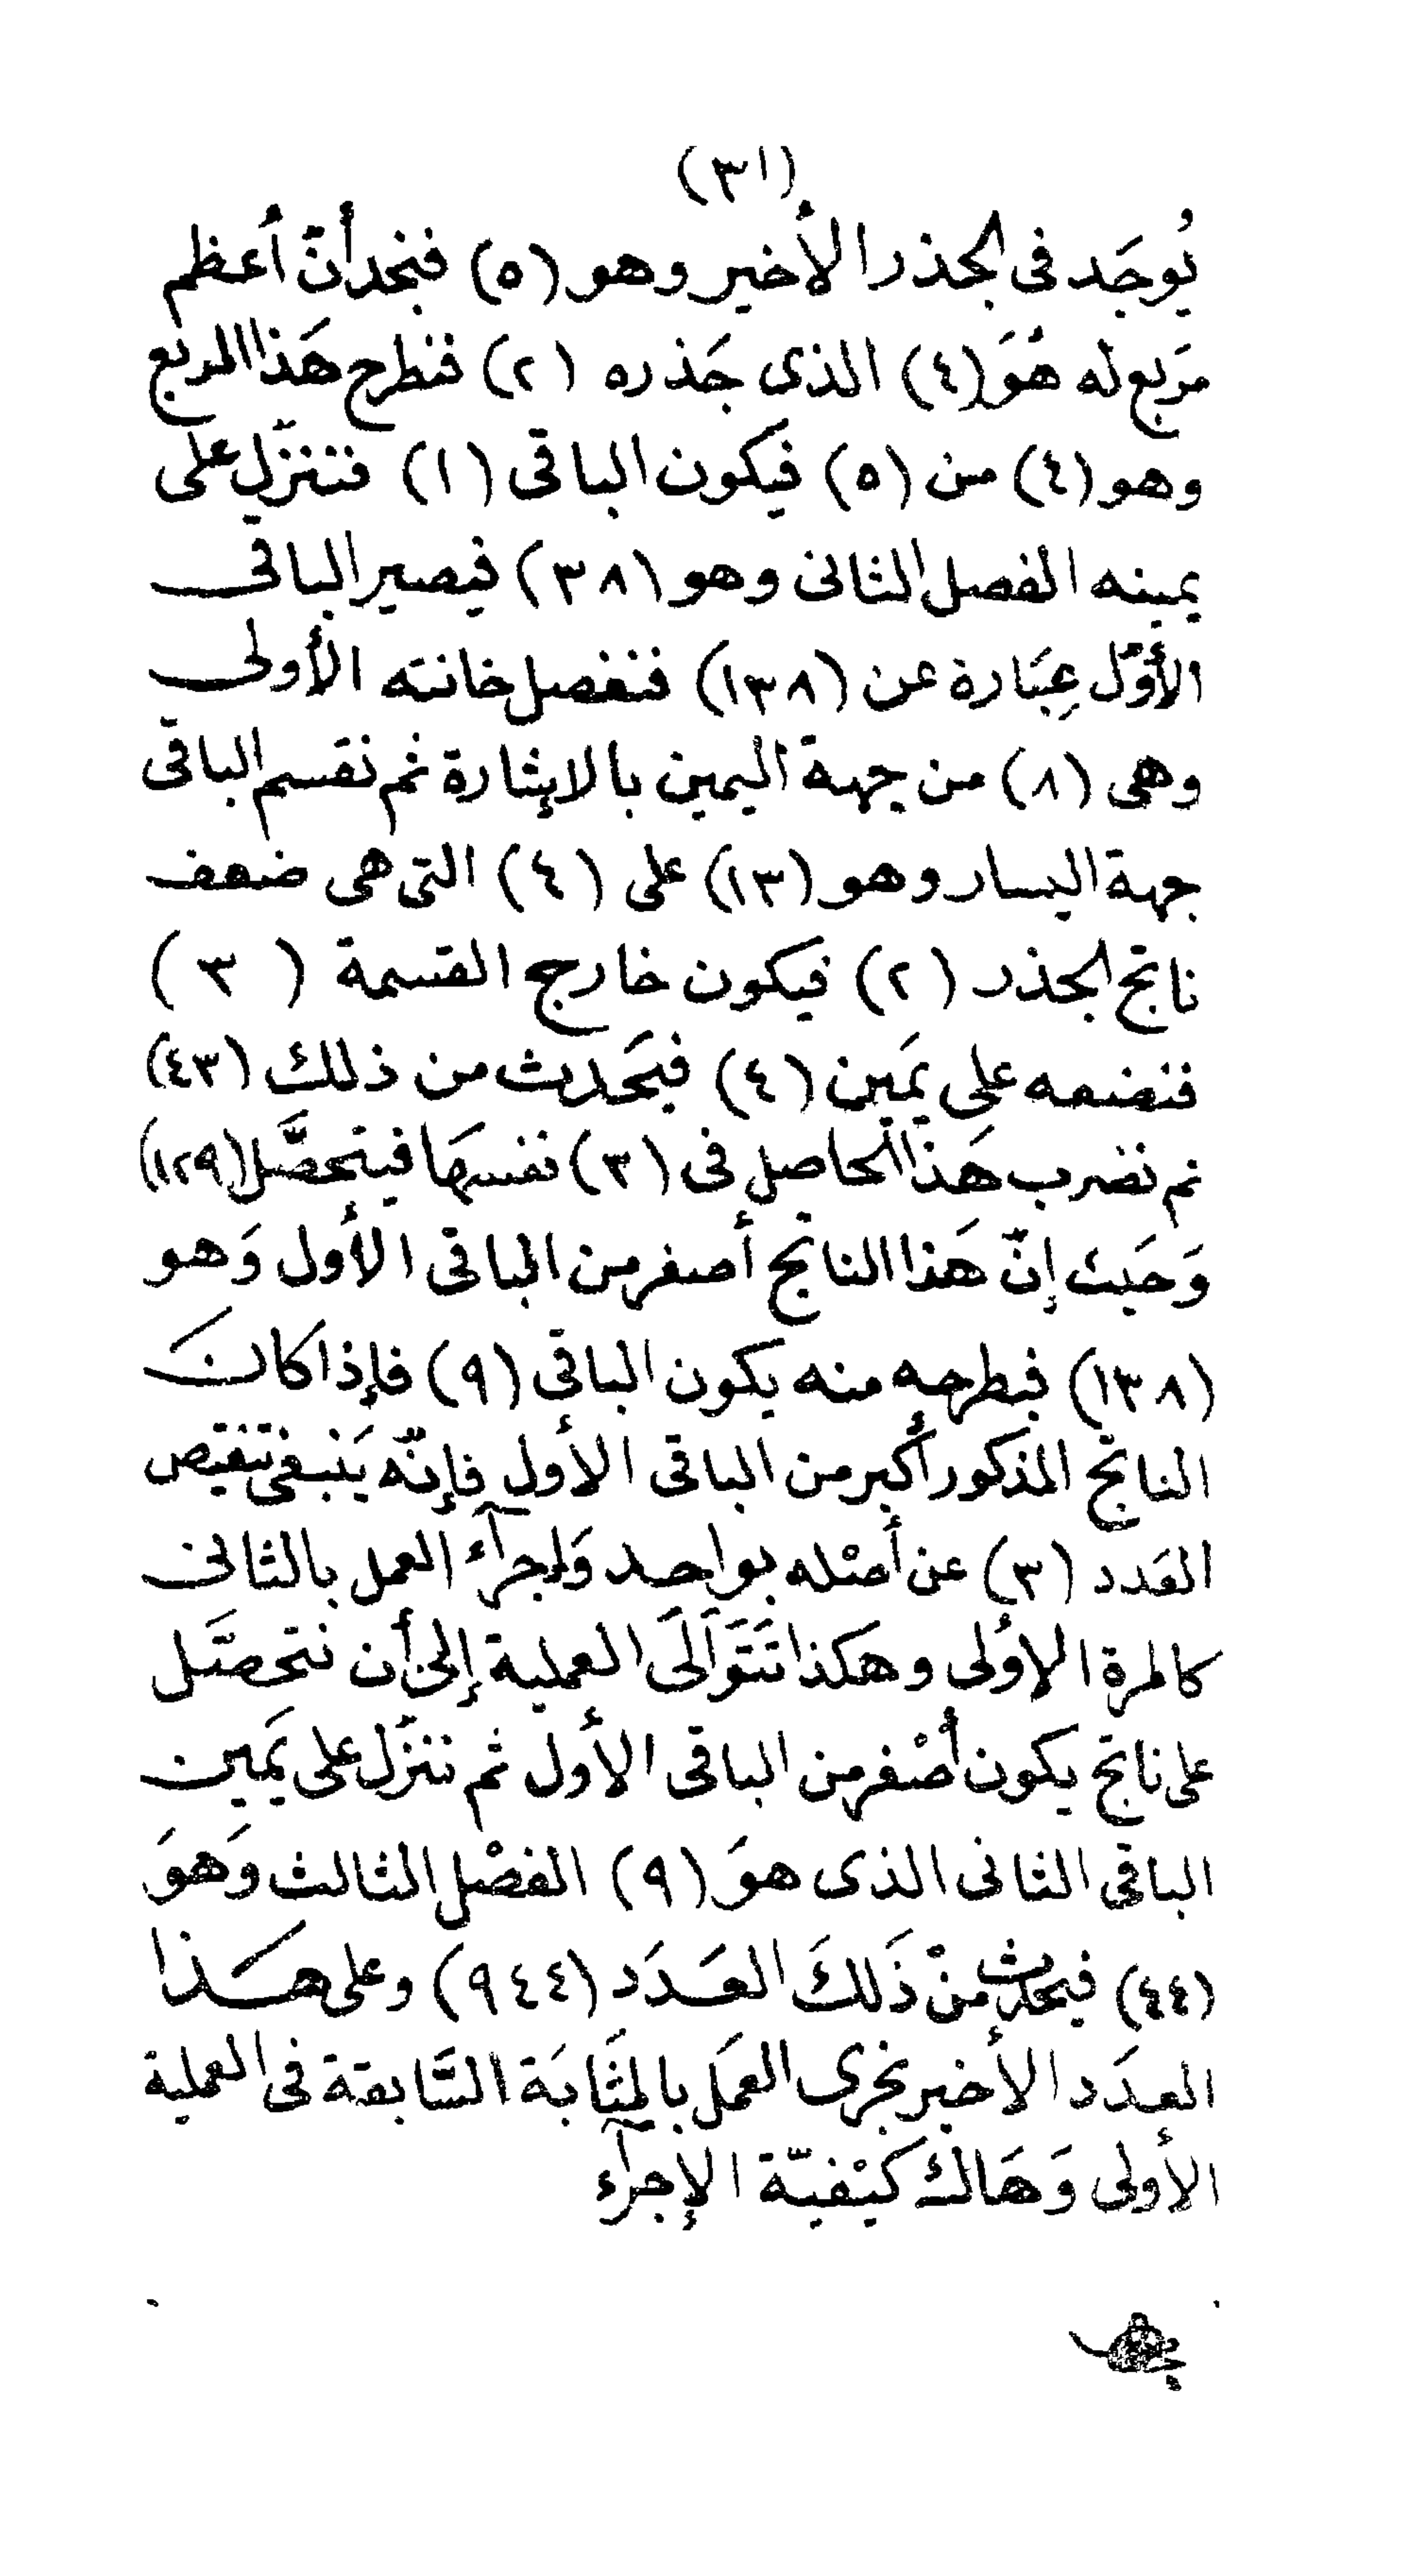 (٣١)
يُوجَد فى الجذر الأخير وهو (٥) فنجد أنّ أعظم
مَربع له هُوَ (٤) الذى جَذره (٢) فنطرح هَذا المربع
وهو (٤) من (٥) فيَكون الباقى (١) فتنزّل على
يمينه الفصل الثانى وهو (٣٨) فيصير الباقى
الأوّل عِبَارة عن (١٣٨) فنفصل خانته الأولى
وهى (٨) من جهة اليمين بالإشارة ثم نقسم الباقى
جهة اليسار وهو (١٣) على (٤) التى هى ضعف
ناتج الجذر (٢) فيكون خارج القسمة (٣)
فنضعه على يَمين (٤) فيَحدث من ذلك (٤٣)
ثم نضرب هَذا الحاصل فى (٣) نفسهَا فيتحصَّل (١٢٩)
وَحَيث إنّ هَذا الناتج أصغر من الباقى الأول وَهو
(١٣٨) فبطرحه منه يكون الباقى (٩) فإذا كانَ
الناتج المذكور أكبر من الباقى الأول فإنّه يَنبغى تنقيص
العَدد (٣) عن أصْله بواحد وَإجرآء العمل بالثانى
كالمرة الأولى وهكذا تَتَوَالَى العملية إلى أن نتحصَّل
على ناتج يكون أصْغر من الباقى الأول ثم ننزّل على يَمين
الباقى الثانى الذى هوَ (٩) الفصْل الثالث وَهوَ
(٤٤) فيحدث منْ ذَلكَ العَدَد (٩٤٤) وعلى هَذا
العدَد الأخير نجرى العمَل بالمثَابَة السَّابقة فى العملية
الأولى وَهَاك كيْفيّة الإجرآء